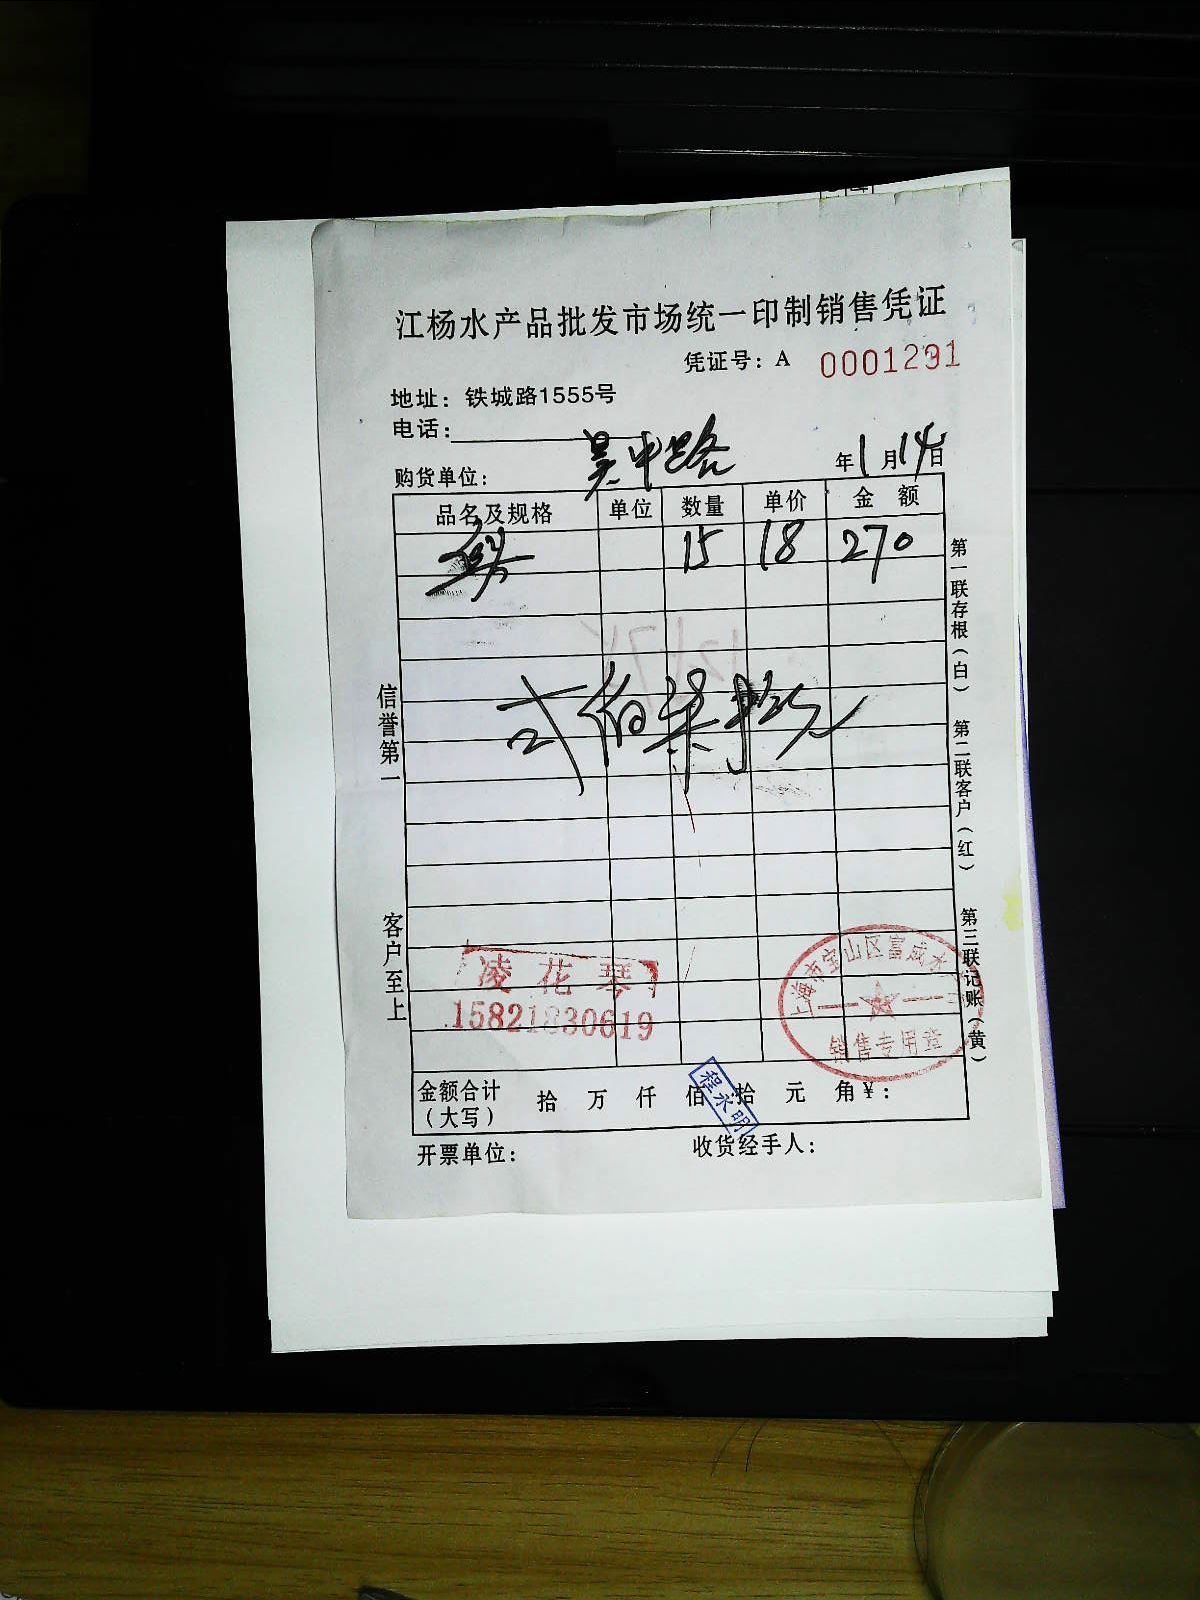 江杨水产品批发市场统一印制销售凭证
凭证号：A 0001291
地址：铁城路1555号
电话：
购货单位：吴中路 年1月14日
品名及规格 单位 数量 单价 金额
15 18 270
弍佰柒拾元
信誉第一
客户至上
第一联存根（白）
第二联客户（红）
第三联记账（黄）
凌花琴
15821830619
上海市宝山区富成水
销售专用章
金额合计（大写） 拾 万 仟 佰 拾 元 角 ¥：
程永明
开票单位： 收货经手人：